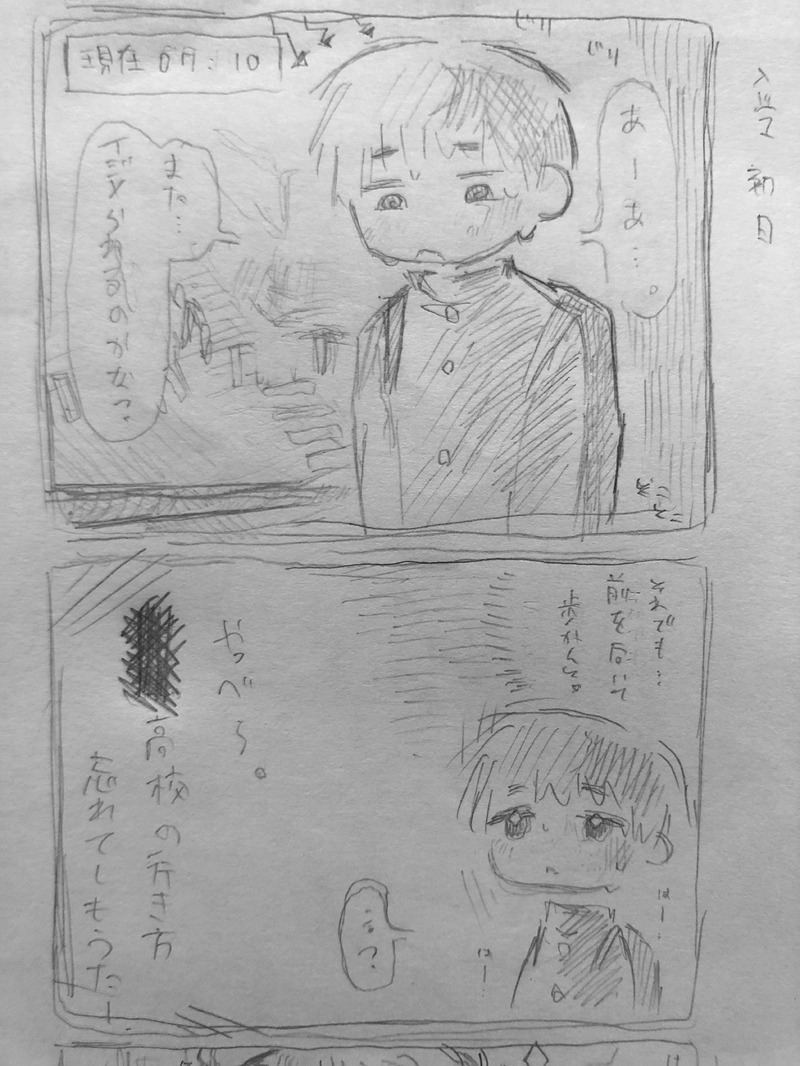 入学初日
じり
じり
現在 07:10
あーあ…。
また…
イジメられるのかなっ、
それでも…
前を向いて
歩かんと。
はー…
はー…
…ん?
やっべぇ。
高校の行き方
忘れてしもうたー